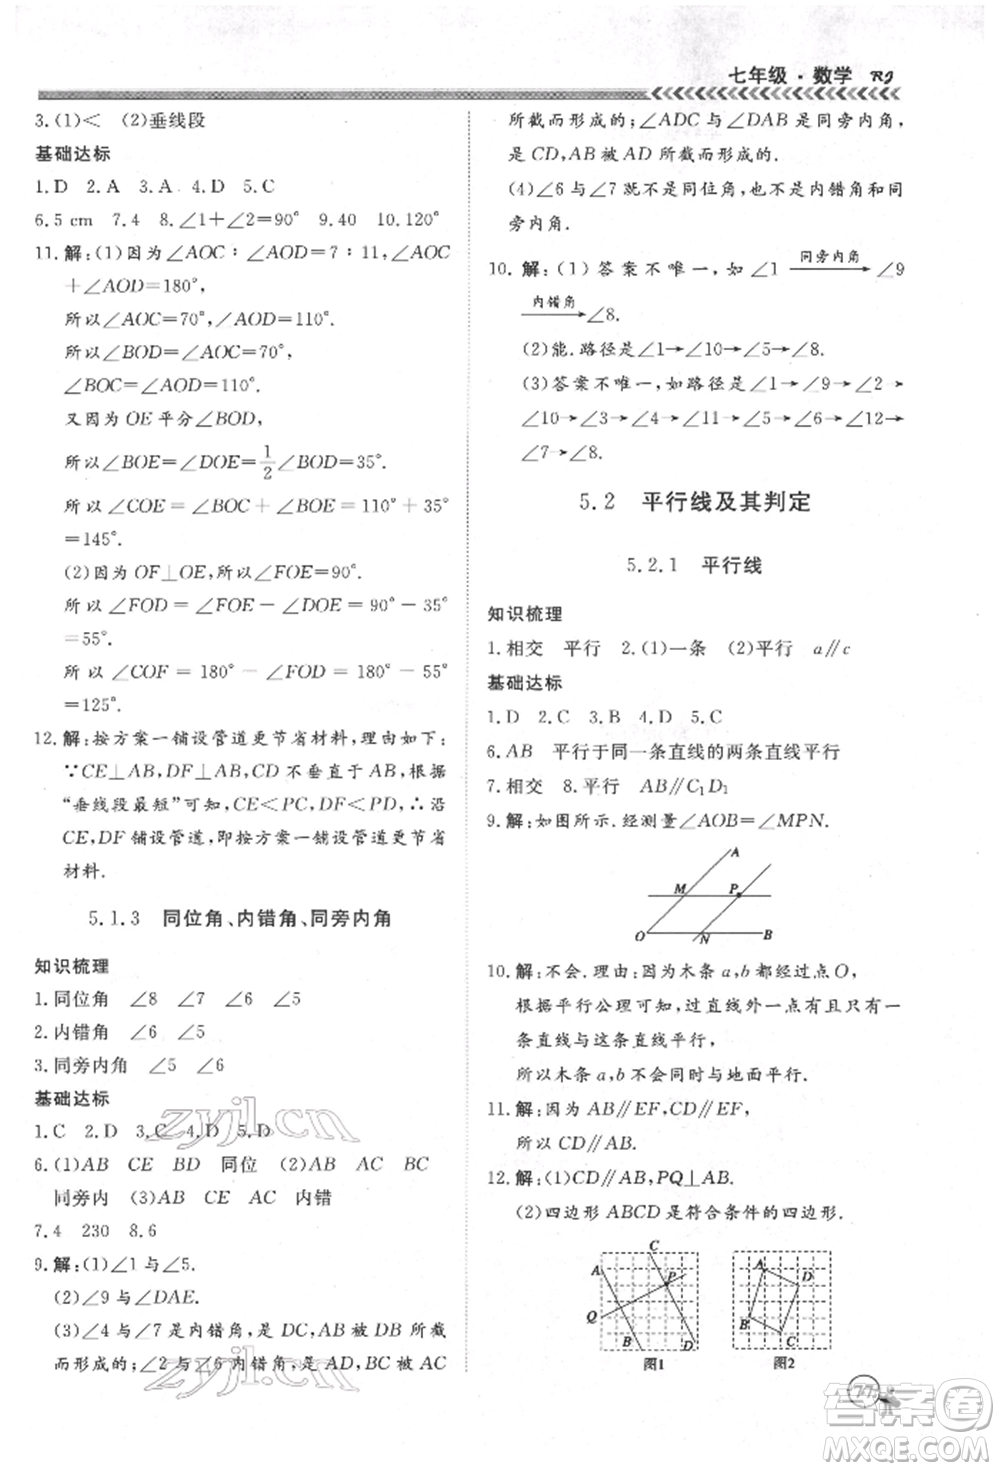 七年级·数学 RJ
3.(1)< (2)垂线段
基础达标
1.D 2.A 3.A 4.D 5.C
6.5 cm 7.4 8.∠1+∠2=90° 9.40 10.120°
11.解:(1)因为∠AOC∶∠AOD=7∶11,∠AOC
+∠AOD=180°,
所以∠AOC=70°,∠AOD=110°.
所以∠BOD=∠AOC=70°,
∠BOC=∠AOD=110°.
又因为OE平分∠BOD,
所以∠BOE=∠DOE=1/2∠BOD=35°.
所以∠COE=∠BOC+∠BOE=110°+35°
=145°.
(2)因为OF⊥OE,所以∠FOE=90°.
所以∠FOD=∠FOE-∠DOE=90°-35°
=55°.
所以∠COF=180°-∠FOD=180°-55°
=125°.
12.解:按方案一铺设管道更节省材料.理由如下:
∵CE⊥AB,DF⊥AB,CD不垂直于AB,根据
“垂线段最短”可知,CE<PC,DF<PD,∴沿
CE,DF铺设管道,即按方案一铺设管道更节省
材料.
5.1.3 同位角、内错角、同旁内角
知识梳理
1.同位角 ∠8 ∠7 ∠6 ∠5
2.内错角 ∠6 ∠5
3.同旁内角 ∠5 ∠6
基础达标
1.C 2.D 3.C 4.D 5.D
6.(1)AB CE BD 同位 (2)AB AC BC
同旁内 (3)AB CE AC 内错
7.4 230 8.6
9.解:(1)∠1与∠5.
(2)∠9与∠DAE.
(3)∠4与∠7是内错角,是DC,AB被DB所截
而形成的;∠2与∠6是内错角,是AD,BC被AC
所截而形成的;∠ADC与∠DAB是同旁内角,
是CD,AB被AD所截而形成的.
(4)∠6与∠7既不是同位角,也不是内错角和同
旁内角.
10.解:(1)答案不唯一,如∠1 同旁内角→ ∠9
内错角→ ∠8.
(2)能.路径是∠1→∠10→∠5→∠8.
(3)答案不唯一,如路径是∠1→∠9→∠2→
∠10→∠3→∠4→∠11→∠5→∠6→∠12→
∠7→∠8.
5.2 平行线及其判定
5.2.1 平行线
知识梳理
1.相交 平行 2.(1)一条 (2)平行 a∥c
基础达标
1.D 2.C 3.B 4.D 5.C
6.AB 平行于同一条直线的两条直线平行
7.相交 8.平行 AB∥C₁D₁
9.解:如图所示.经测量∠AOB=∠MPN.
A
M P
O N B
10.解:不会.理由:因为木条a,b都经过点O,
根据平行公理可知,过直线外一点有且只有一
条直线与这条直线平行.
所以木条a,b不会同时与地面平行.
11.解:因为AB∥EF,CD∥EF,
所以CD∥AB.
12.解:(1)CD∥AB,PQ⊥AB.
(2)四边形ABCD是符合条件的四边形.
C
A P
Q
B D
图1
A D
B
C
图2
77
zyjl.cn
zyjl.cn
答案圈
MXQE.COM